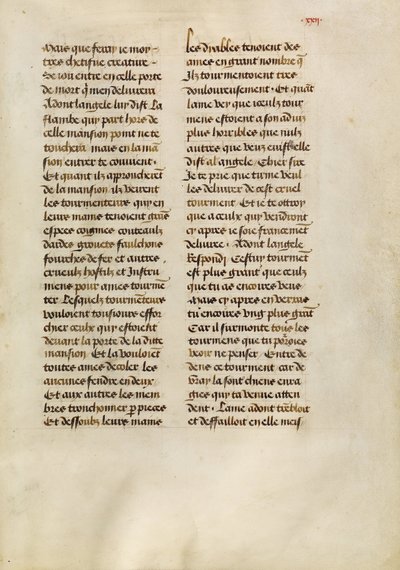 .xxii.
Mais que feray ie moy
tres chetiue creature
Se iou entre en celle porte
de mort q̄ men deliurera
Adont langele luy dist La
flambe quy part hors de
celle mansion point ne te
touchera mais en la mā
sion entrer te conuient.
Et quant ilz approcherēt
de la mansion ilz veirent
les tourmenteurs quy en
leurs mains tenoient grās
espees coignies cousteaulx
dardes grauets faulchons
fourches de fer et autres
crueulx hostilz et Instru
mens pour ames tourmē
ter Lesquelz tourmēteurs
vouloient tousiours effor
chier ceulx quy estoient
deuant la porte de la dite
mansion Et la vouloiēt
toutes ames decoler les
aucunes fendre en deux
Et aux autres les mem
bres tronchonner p pieces
Et dessoubz leurs mains
les dyables tenoient des
ames en grant nombre q̄
Ilz tourmentoient tres
douloureusement. Et quāt
lame vey que iceulx tour
mens estoient a son aduiz
plus horribles que nulz
autres que veuz euist elle
dist al angele. Chier sire
Je te prie que tu me veul
les deliurer de cest cruel
tourment. Et ie te ottroy
que a ceulx quy vendront
cy apres ie soie francemēt
deliuree. Adont langele
Respondi Cestuy tourmēt
est plus grant que ceulx
que tu as encores veus
Mais cy apres en verras
tu encores vng plus grāt
Car il surmonte tous les
tourmens que tu porroies
veoir ne penser. Entre de
dens ce tourment car de
vray la sont chiens enra
gies quy ta venue atten
dent. Lame adont trēbloit
et deffailloit en elle meis